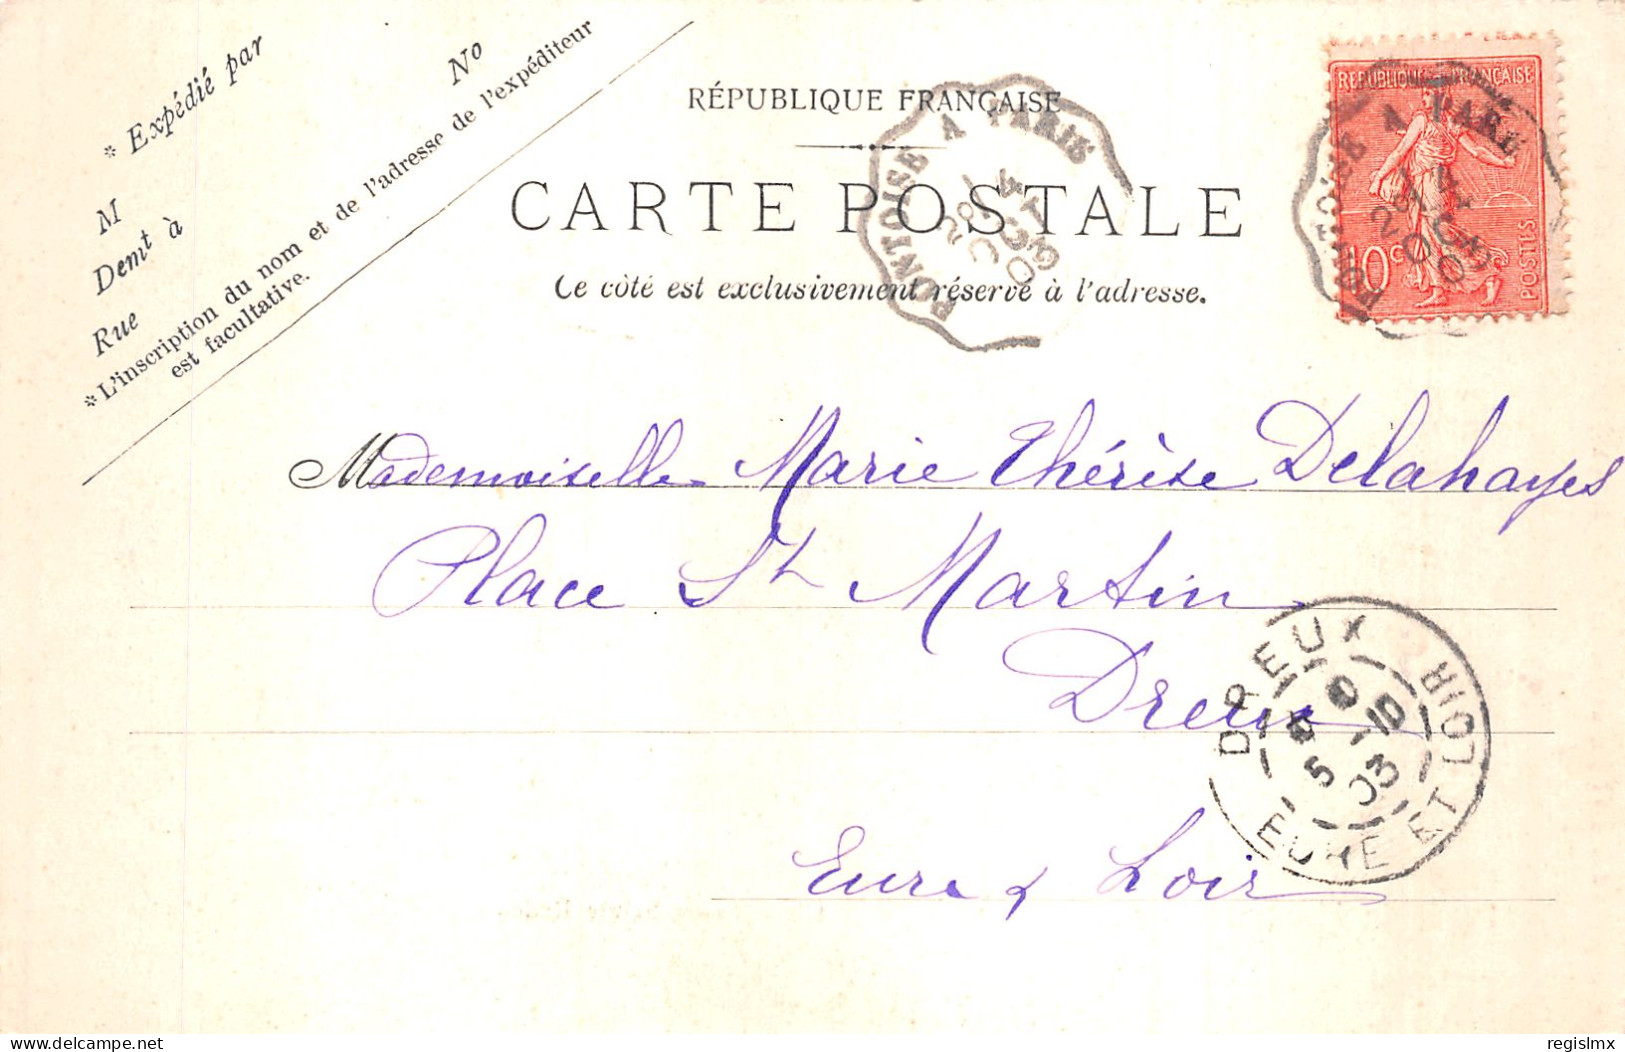 * Expédié par
No
M
Demt à
Rue
* L'inscription du nom et de l'adresse de l'expéditeur
est facultative.
RÉPUBLIQUE FRANÇAISE
CARTE POSTALE
Ce côté est exclusivement réservé à l'adresse.
PONTOISE A PARIS
RÉPUBLIQUE FRANÇAISE
10c
POSTES
PONTOISE A PARIS
Mademoiselle Marie Thérèse Delahayes
Place St Martin
Dreux
Eure & Loir
DREUX
5 03
EURE ET LOIR
Delcampe.net
regislmx